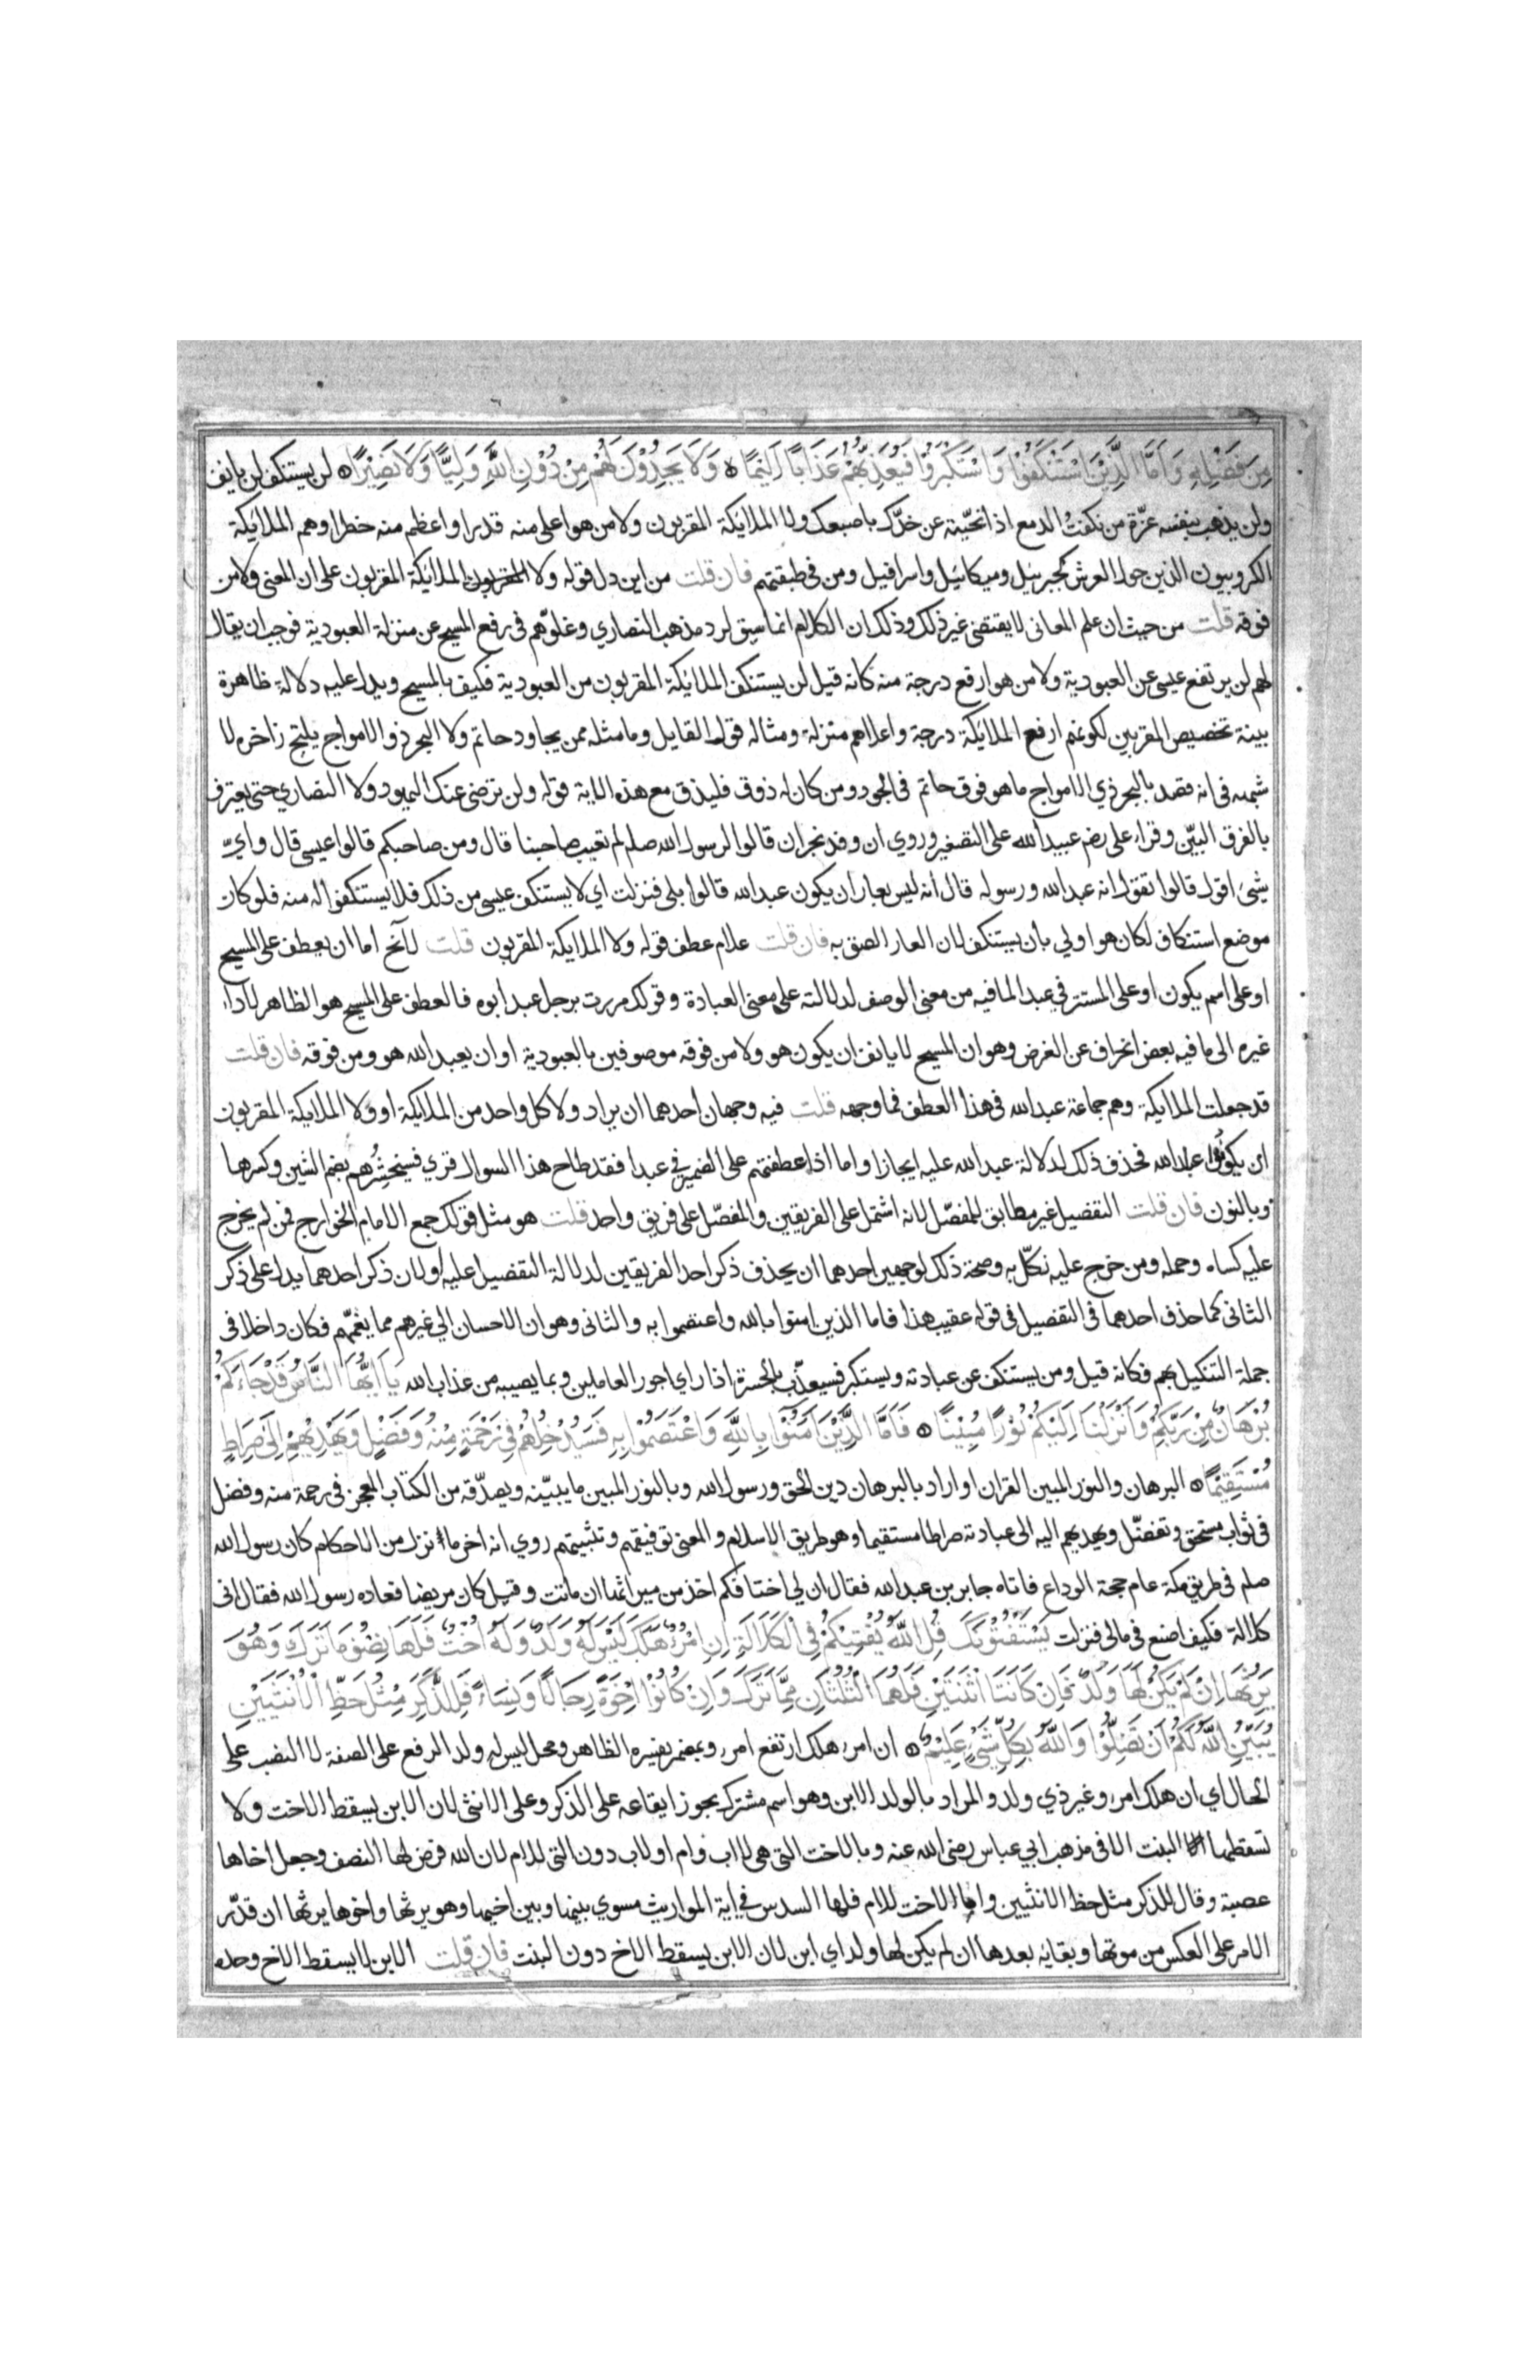 مِنْ فَضْلِهِ وَاَمَّا الَّذِيْنَ اسْتَنْكَفُوْا وَاسْتَكْبَرُوْا فَيُعَذِّبُهُمْ عَذَابًا اَلِيْمًا ۝ وَلَا يَجِدُوْنَ لَهُمْ مِنْ دُوْنِ اللّٰهِ وَلِيًّا وَلَا نَصِيْرًا ۝ لن يستنكف لن يانف
ولن يذهب بنفسه عزّة من نكفت الدمع اذا نحّيته عن خدّك باصبعك ولا الملائكة المقربون ولا من هو اعلى منه قدرا واعظم منه خطرا وهم الملائكة
الكروبيون الذين حول العرش كجبرئيل وميكائيل واسرافيل ومن في طبقتهم فان قلت من اين دل قوله ولا الملائكة المقربون على ان المعنى ولا من
فوقه قلت من حيث ان علم المعاني لا يقتضي غير ذلك وذلك ان الكلام انما سيق لرد مذهب النصاري وغلوّهم في رفع المسيح عن منزلة العبودية فوجب ان يقال
لهم لن يرتفع عيسى عن العبودية ولا من هو ارفع درجة منه كانه قيل لن يستنكف الملائكة المقربون من العبودية فكيف بالمسيح ويدل عليه دلالة ظاهرة
بينة تخصيص المقربين لكونهم ارفع الملائكة درجة واعلاهم منزلة ومثاله قول القايل وما مثله ممن يجاود حاتم ولا البحر ذو الامواج يلتج زاخره لا
شبهه في انه قصد بالبحر ذي الامواج ما هو فوق حاتم في الجود ومن كان له ذوق فليذق مع هذه الاية قوله ولن ترضى عنك اليهود ولا النصاري حتى يعترف
بالفرق البيّن وقراء على رضم عبيد الله على التصغير وروي ان وفد نجران قالوا لرسول الله صلم لم تعيب صاحبنا قال ومن صاحبكم قالوا عيسى قال واىّ
شيئ اقول قالوا تقول انه عبد الله ورسوله قال انه ليس بعار ان يكون عبد الله قالوا بلى فنزلت اي لا يستنكف عيسى من ذلك فلا يستنكفوا له منه فلو كان
موضع استنكاف لكان هو اولي بان يستنكف لان العار الصق به فان قلت علام عطف قوله ولا الملايكة المقربون قلت لا يخ اما ان يعطف على المسيح
او على اسم يكون او على المستتر في عبد لما فيه من معنى الوصف لدلالته على معنى العبادة وقولك مررت برجل عبد ابوه فالعطف على المسيح هو الظاهر لاداء
غيره الى ما فيه بعض انحراف عن الغرض وهو ان المسيح لا يانف ان يكون هو ولا من فوقه موصوفين بالعبودية او ان يعبد الله هو ومن فوقه فان قلت
قد جعلت الملايكة وهم جماعة عبد الله في هذا العطف فما وجهه قلت فيه وجهان احدهما ان يراد ولا كل واحد من الملايكة او ولا الملايكة المقربون
ان يكونوا عباد الله فحذف ذلك لدلالة عبد الله عليه ايجازا واما اذا عطفتهم على الضمير في عبدا فقد طاح هذا السوال قري فسيحشُرُهم بضم الشين وكسرها
وبالنون فان قلت التفصيل غير مطابق للمفصّل لانه اشتمل على الفريقين والمفصّل على فريق واحد قلت هو مثل قولك جمع الامام الخوارج فمن لم يخرج
عليه كساه وحمله ومن خرج عليه نكّل به وصحة ذلك لوجهين احدهما ان يحذف ذكر احد الفريقين لدلالة التفصيل عليه ولان ذكر احدهما يدل على ذكر
الثاني كما حذف احدهما في التفصيل في قوله عقيب هذا فاما الذين امنوا بالله واعتصموا به والثاني وهو ان الاحسان الي غيرهم مما يغمّهم فكان داخلا في
جملة التنكيل بهم فكانه قيل ومن يستنكف عن عبادته ويستكبر فسيعذّب بالحسرة اذا راي اجور العاملين وبما يصيبه من عذاب الله يَا اَيُّهَا النَّاسُ قَدْ جَاءَكُمْ
بُرْهَانٌ مِنْ رَبِّكُمْ وَاَنْزَلْنَا اِلَيْكُمْ نُوْرًا مُبِيْنًا ۝ فَاَمَّا الَّذِيْنَ اٰمَنُوْا بِاللّٰهِ وَاعْتَصَمُوْا بِهِ فَسَيُدْخِلُهُمْ فِيْ رَحْمَةٍ مِنْهُ وَفَضْلٍ وَيَهْدِيْهِمْ اِلَيْهِ صِرَاطًا
مُسْتَقِيْمًا ۝ البرهان والنور المبين القران او اراد بالبرهان دين الحق ورسول الله وبالنور المبين ما يبيّنه ويصدّقه من الكتاب المعجز في رحمة منه وفضل
في ثواب مستحق وتفضّل ويهديهم اليه الى عبادته صراطا مستقيما وهو طريق الاسلام والمعنى توفيقهم وتثبيتهم روي انه اخر ما نزل من الاحكام كان رسول الله
صلم في طريق مكة عام حجة الوداع فاتاه جابر بن عبد الله فقال ان لي اختا فكم اخذ من ميراثها ان ماتت وقيل كان مريضا فعاده رسول الله فقال اني
كلالة فكيف اصنع في مالي فنزلت يَسْتَفْتُوْنَكَ قُلِ اللّٰهُ يُفْتِيْكُمْ فِي الْكَلَالَةِ اِنِ امْرُؤٌ هَلَكَ لَيْسَ لَهُ وَلَدٌ وَلَهُ اُخْتٌ فَلَهَا نِصْفُ مَا تَرَكَ وَهُوَ
يَرِثُهَا اِنْ لَمْ يَكُنْ لَهَا وَلَدٌ فَاِنْ كَانَتَا اثْنَتَيْنِ فَلَهُمَا الثُّلُثَانِ مِمَّا تَرَكَ وَاِنْ كَانُوْا اِخْوَةً رِجَالًا وَنِسَاءً فَلِلذَّكَرِ مِثْلُ حَظِّ الْاُنْثَيَيْنِ
يُبَيِّنُ اللّٰهُ لَكُمْ اَنْ تَضِلُّوْا وَاللّٰهُ بِكُلِّ شَيْءٍ عَلِيْمٌ ۝ ان امرء هلك ارتفع امرء وبمضمر يفسره الظاهر ومحل ليس له ولد الرفع على الصفة لا النصب على
الحال اي ان هلك امرء وغير ذي ولد والمراد بالولد الابن وهو اسم مشترك يجوز ايقاعه على الذكر وعلى الانثى لان الابن يسقط الاخت ولا
تسقطها البنت الا في مذهب ابي عباس رضى الله عنه وبالاخت التي هي لاب وام او لاب دون التي للام لان الله فرض لها النصف وجعل اخاها
عصبة وقال للذكر مثل حظ الانثيين واما الاخت للام فلها السدس في اية المواريث مسوي بينها وبين اخيها وهو يرثها واخوها يرثها ان قدّر
الامر على العكس من موتها وبقائه بعدها ان لم يكن لها ولد اي ابن لان الابن يسقط الاخ دون البنت فان قلت الابن لا يسقط الاخ وحده